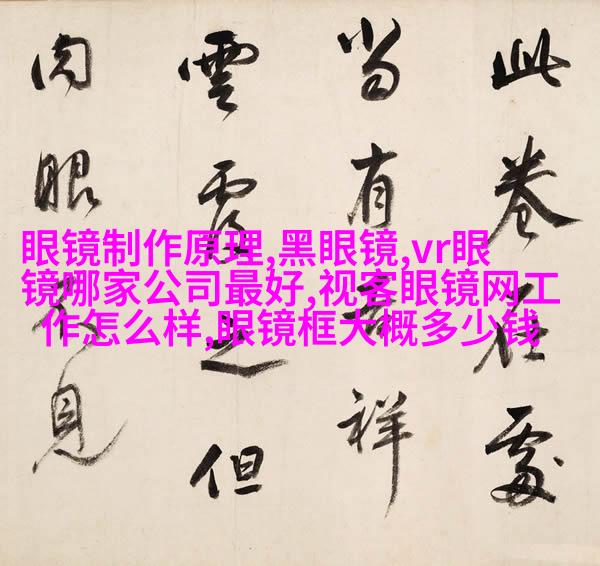 此卷在處
當有吉祥
雲覆之但
肉眼不見
眼镜制作原理,黑眼镜,vr眼
镜哪家公司最好,视客眼镜网工
作怎么样,眼镜框大概多少钱